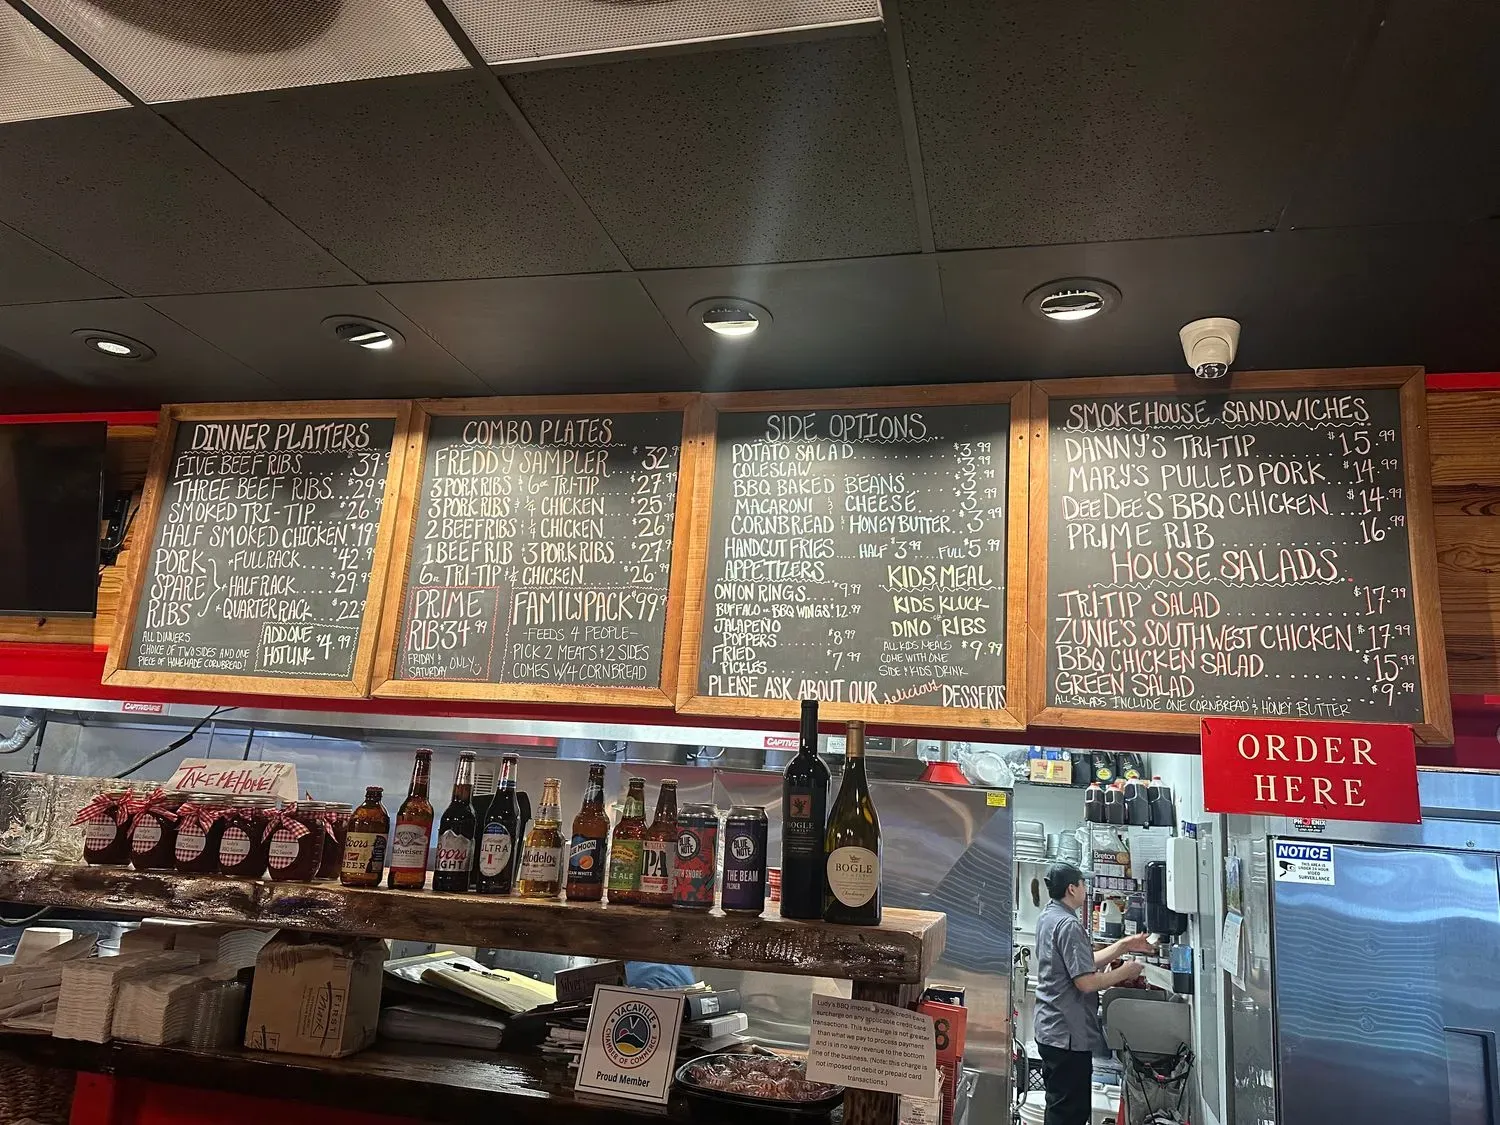 DINNER PLATTERS
FIVE BEEF RIBS $39.99
THREE BEEF RIBS...$29.99
SMOKED TRI-TIP $26.99
HALF SMOKED CHICKEN $19.99
PORK SPARE RIBS
• FULL RACK.....$42.99
• HALF RACK.....$29.99
• QUARTER RACK...$22.99
ALL DINNERS
CHOICE OF TWO SIDES AND ONE
PIECE OF HOMEMADE CORNBREAD!
ADD ONE
HOT LINK $4.99
COMBO PLATES
FREDDY SAMPLER $32.99
3 PORK RIBS & 6oz TRI-TIP $27.99
3 PORK RIBS & 1/4 CHICKEN $25.99
2 BEEF RIBS & 1/4 CHICKEN $26.99
1 BEEF RIB & 3 PORK RIBS $27.99
6oz TRI-TIP & 1/4 CHICKEN $26.99
PRIME
RIB $34.99
FRIDAY &
SATURDAY ONLY
FAMILY PACK $99.99
-FEEDS 4 PEOPLE-
PICK 2 MEATS & 2 SIDES
COMES W/4 CORNBREAD
SIDE OPTIONS
POTATO SALAD $3.99
COLESLAW $3.99
BBQ BAKED BEANS $3.99
MACARONI & CHEESE $3.99
CORNBREAD & HONEY BUTTER $3.99
HANDCUT FRIES.... HALF $3.99 FULL $5.99
APPETIZERS
ONION RINGS $9.99
BUFFALO or BBQ WINGS $12.99
JALAPEÑO
POPPERS $8.99
FRIED
PICKLES $7.99
KIDS MEAL
KIDS KLUCK
DINO or RIBS
ALL KIDS MEALS $9.99
COME WITH ONE
SIDE & KIDS DRINK
PLEASE ASK ABOUT OUR delicious DESSERTS
SMOKEHOUSE SANDWICHES
DANNY'S TRI-TIP $15.99
MARY'S PULLED PORK $14.99
DEE DEE'S BBQ CHICKEN $14.99
PRIME RIB 16.99
HOUSE SALADS
TRI-TIP SALAD $17.99
ZUNIE'S SOUTHWEST CHICKEN $17.99
BBQ CHICKEN SALAD $15.99
GREEN SALAD $9.99
ALL SALADS INCLUDE ONE CORNBREAD & HONEY BUTTER
ORDER
HERE
CAPTIVEAIRE
CAPTIVE
$7.99
TAKE ME HOME!
Coors
Budweiser
Coors
LIGHT
ULTRA
Modelo
BLUE MOON
PALE ALE
IPA
BLUE NOTE
NORTH SHORE
BLUE
NOTE
THE BEAM
PILSNER
BOGLE
BOGLE
Chardonnay
NOTICE
THIS AREA IS
UNDER 24 HOUR
VIDEO
SURVEILLANCE
PHOENIX
Breton
FIRST
MARK
VACAVILLE
CHAMBER OF COMMERCE
Proud Member
Ludy's BBQ imposes a 2.5% credit card
surcharge on any applicable credit card
transactions. This surcharge is not greater
than what we pay to process payment
and is in no way revenue to the bottom
line of the business. (Note: this charge is
not imposed on debit or prepaid card
transactions.)
8